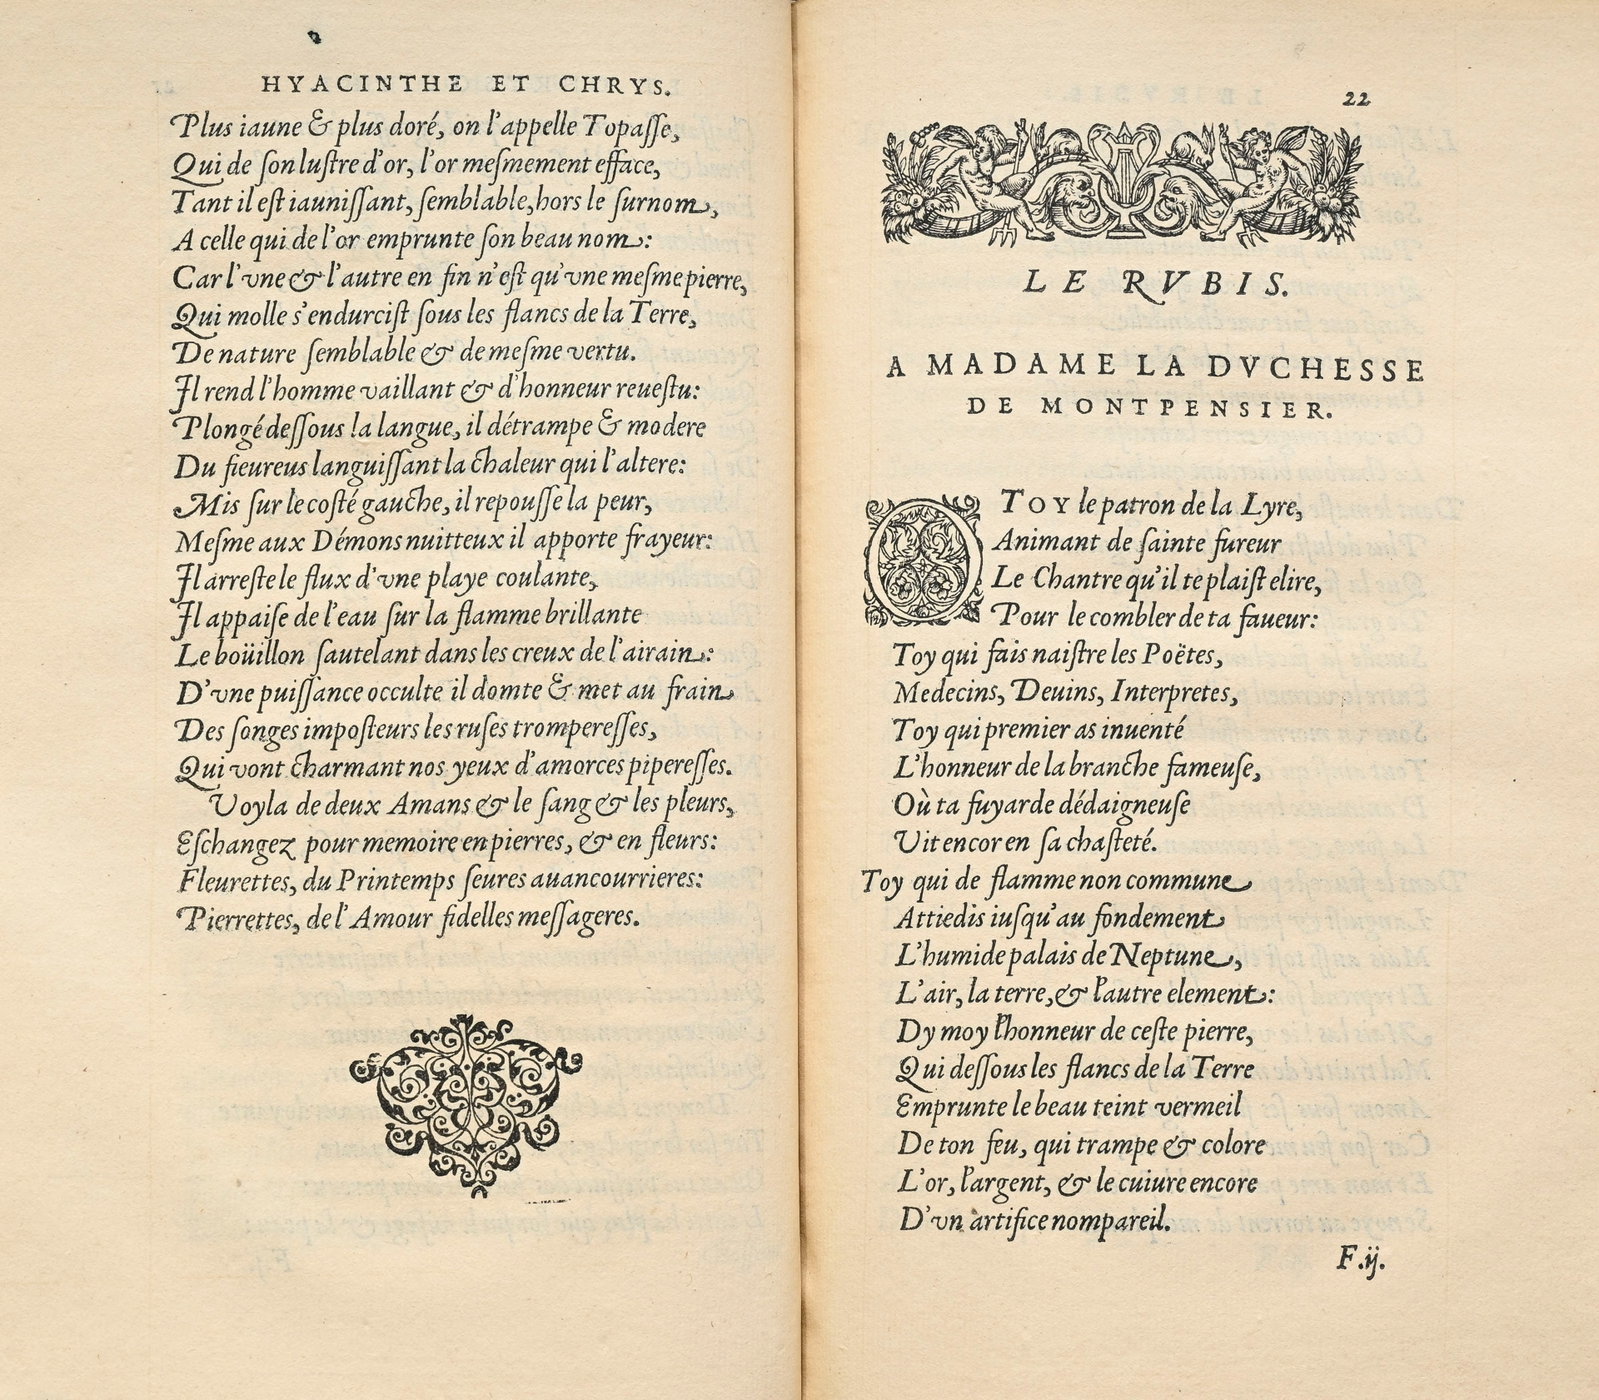 HYACINTHE ET CHRYS.
Plus iaune & plus doré, on l'appelle Topaſſe,
Qui de ſon luſtre d'or, l'or meſmement efface,
Tant il eſt iauniſſant, ſemblable, hors le ſurnom,
A celle qui de l'or emprunte ſon beau nom:
Car l'vne & l'autre en fin n'eſt qu'vne meſme pierre,
Qui molle s'endurciſt ſous les flancs de la Terre,
De nature ſemblable & de meſme vertu.
Il rend l'homme vaillant & d'honneur reueſtu:
Plongé deſſous la langue, il détrampe & modere
Du fieureus languiſſant la chaleur qui l'altere:
Mis ſur le coſté gauche, il repouſſe la peur,
Meſme aux Démons nuitteux il apporte frayeur:
Il arreſte le flux d'vne playe coulante,
Il appaiſe de l'eau ſur la flamme brillante
Le boüillon ſautelant dans les creux de l'airain:
D'vne puiſſance occulte il domte & met au frain
Des ſonges impoſteurs les ruſes tromperesſes,
Qui vont charmant nos yeux d'amorces piperesſes.
Voyla de deux Amans & le ſang & les pleurs,
Eſchangez pour memoire en pierres, & en fleurs:
Fleurettes, du Printemps ſeures auancourrieres:
Pierrettes, de l'Amour fidelles meſſageres.
22
LE RVBIS.
A MADAME LA DVCHESSE
DE MONTPENSIER.
O TOY le patron de la Lyre,
Animant de ſainte fureur
Le Chantre qu'il te plaiſt elire,
Pour le combler de ta faueur:
Toy qui fais naiſtre les Poëtes,
Medecins, Deuins, Interpretes,
Toy qui premier as inuenté
L'honneur de la branche fameuſe,
Où ta fuyarde dédaigneuſe
Vit encor en ſa chaſteté.
Toy qui de flamme non commune
Attiedis iuſqu'au fondement
L'humide palais de Neptune,
L'air, la terre, & l'autre element:
Dy moy l'honneur de ceſte pierre,
Qui deſſous les flancs de la Terre
Emprunte le beau teint vermeil
De ton feu, qui trampe & colore
L'or, l'argent, & le cuiure encore
D'vn artifice nompareil.
F.ij.